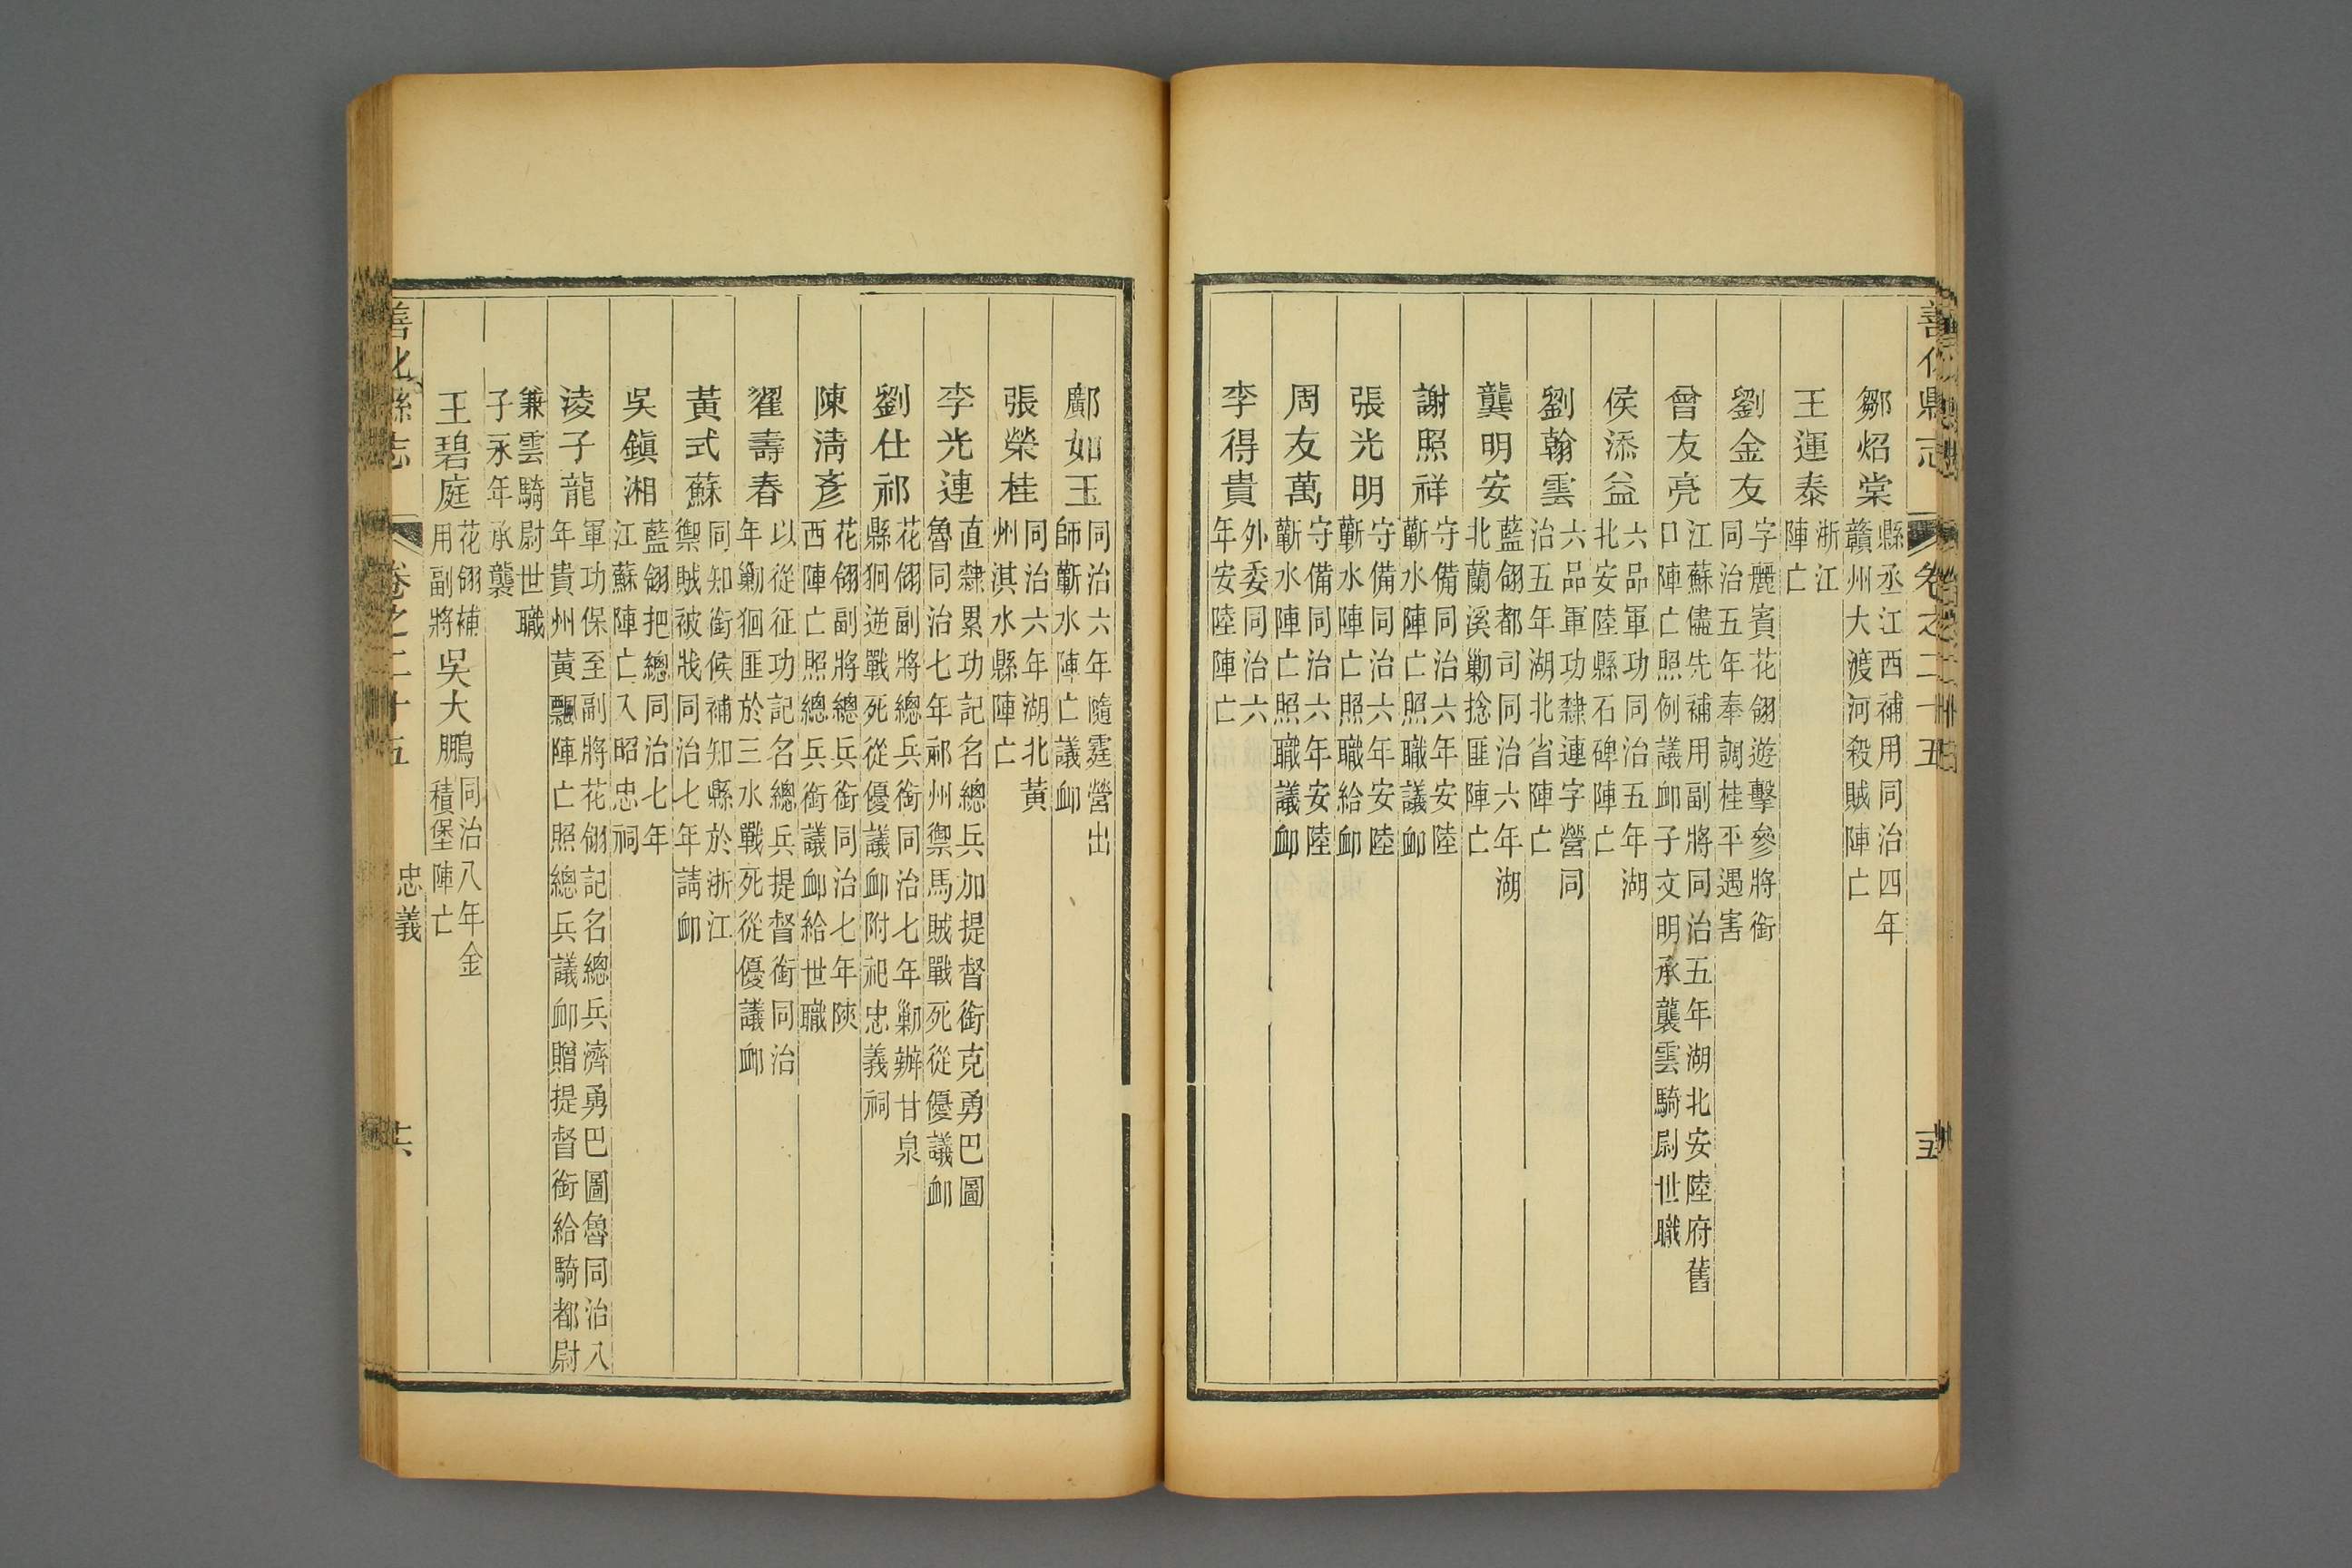 善化縣志 卷之二十五 十五
鄒炤棠 縣丞江西補用同治四年
贛州大渡河殺賊陣亡
王運泰 浙江
陣亡
劉金友 字麗賓花翎遊擊參將銜
同治五年奉調桂平遇害
曾友亮 江蘇儘先補用副將同治五年湖北安陸府舊
口陣亡照例議卹子文明承襲雲騎尉世職
侯添益 六品軍功同治五年湖
北安陸縣石碑陣亡
劉翰雲 六品軍功隸連字營同
治五年湖北省陣亡
龔明安 藍翎都司同治六年湖
北蘭溪勦捻匪陣亡
謝照祥 守備同治六年安陸
蘄水陣亡照職議卹
張光明 守備同治六年安陸
蘄水陣亡照職給卹
周友萬 守備同治六年安陸
蘄水陣亡照職議卹
李得貴 外委同治六
年安陸陣亡
鄺如玉 同治六年隨霆營出
師蘄水陣亡議卹
張榮桂 同治六年湖北黃
州淇水縣陣亡
李光連 直隸累功記名總兵加提督銜克勇巴圖
魯同治七年祁州禦馬賊戰死從優議卹
劉仕祁 花翎副將總兵銜同治七年勦辦甘泉
縣狪逆戰死從優議卹附祀忠義祠
陳淸彥 花翎副將總兵銜同治七年陝
西陣亡照總兵銜議卹給世職
翟壽春 以從征功記名總兵提督銜同治
年勦狪匪於三水戰死從優議卹
黃式蘇 同知銜候補知縣於浙江
禦賊被戕同治七年請卹
吳鎮湘 藍翎把總同治七年
江蘇陣亡入昭忠祠
淩子龍 軍功保至副將花翎記名總兵濟勇巴圖魯同治八
年貴州黃飄陣亡照總兵議卹贈提督銜給騎都尉
兼雲騎尉世職
子永年承襲
王碧庭 花翎補
用副將
吳大鵬 同治八年金
積堡陣亡
善化縣志 卷之二十五 忠義 十六